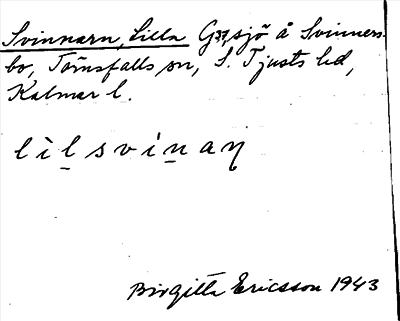 Svinnarn, Lilla G37, sjö å Svinners-
bo, Törnsfalls sn, S. Tjusts hd,
Kalmar l.
lìl̲svín̲aɳ
Birgitta Ericsson 1943